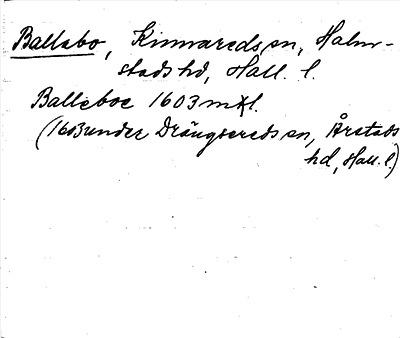 Ballabo, Kinnareds sn, Halm-
stads hd, Hall. l.
Balleboe 1603 mtl.
(1603 under Drängsereds sn, Årstads
hd, Hall. l.)